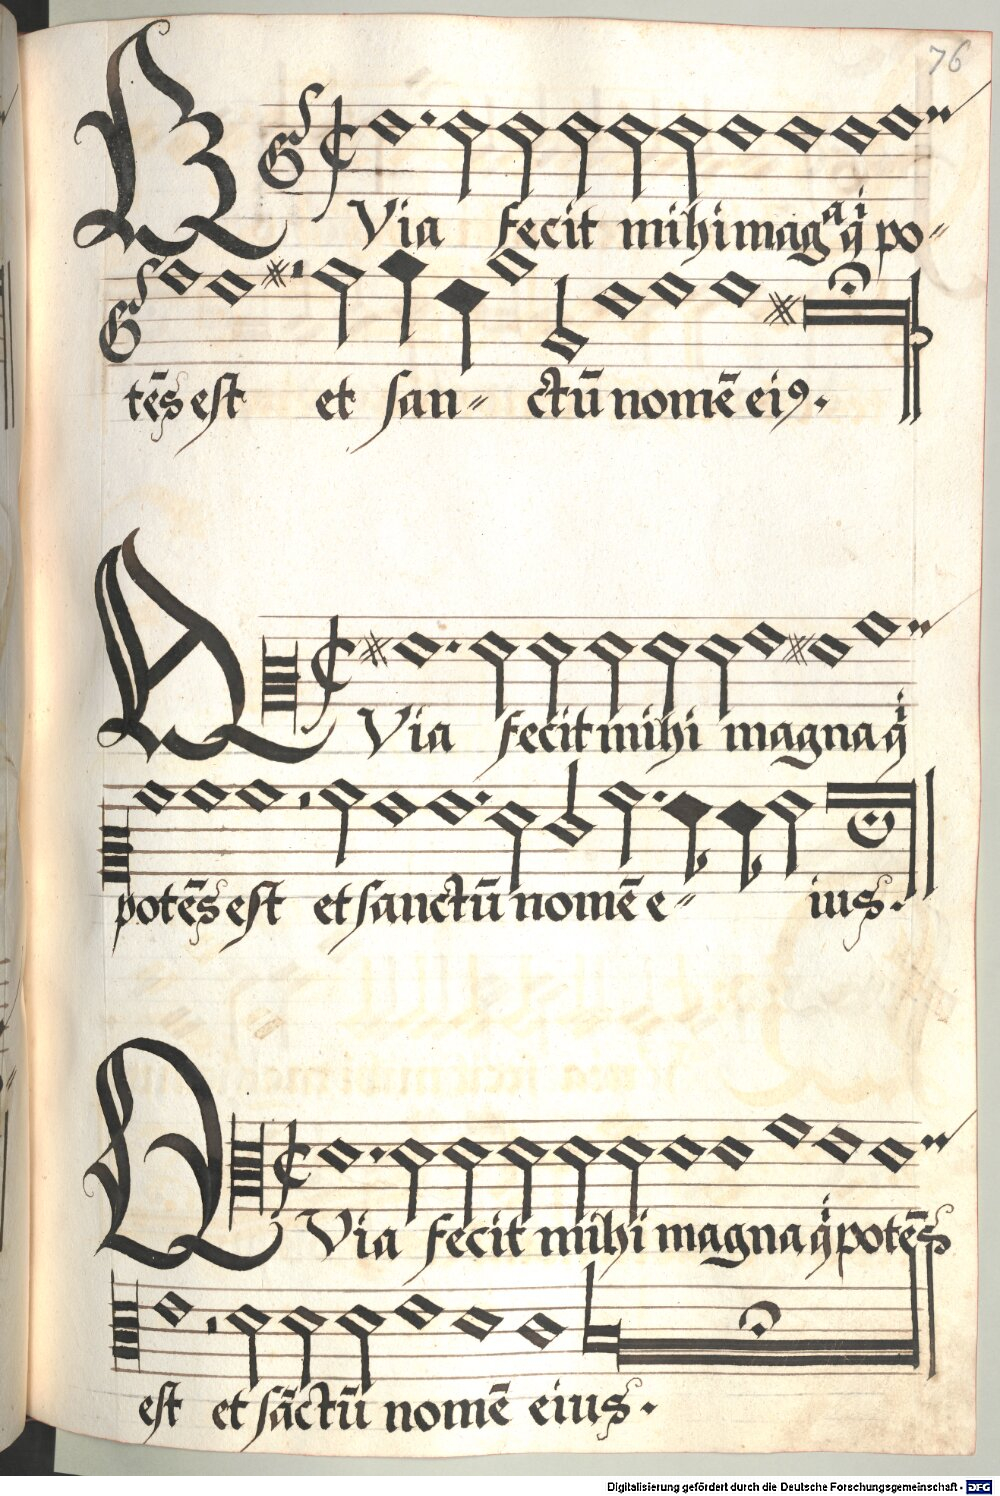 76
QVia fecit mihi magᵃ qⁱ po-
tēs est et san- ctū nomē eiꝰ.
QVia fecit mihi magna qⁱ
potēs est et sanctū nomē e- ius.
QVia fecit mihi magna qⁱ potēs
est et sāctū nomē eius.
Digitalisierung gefördert durch die Deutsche Forschungsgemeinschaft - DFG